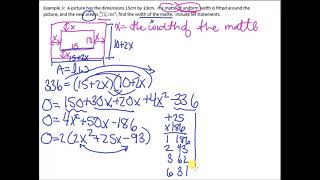 Example 3: A picture has the dimensions 15cm by 10cm. If a matte of uniform width is fitted around the
picture, and the new area is 336 cm², find the width of the matte. Include let statements.
x = the width of the matte
x
x 15 10 x
x
10+2x
15+2x
A = lw
336 = (15+2x)(10+2x)
0 = 150+30x+20x+4x²-336
0 = 4x²+50x-186
0 = 2(2x²+25x-93)
+25
x186
1 186
2 93
3 62
6 31